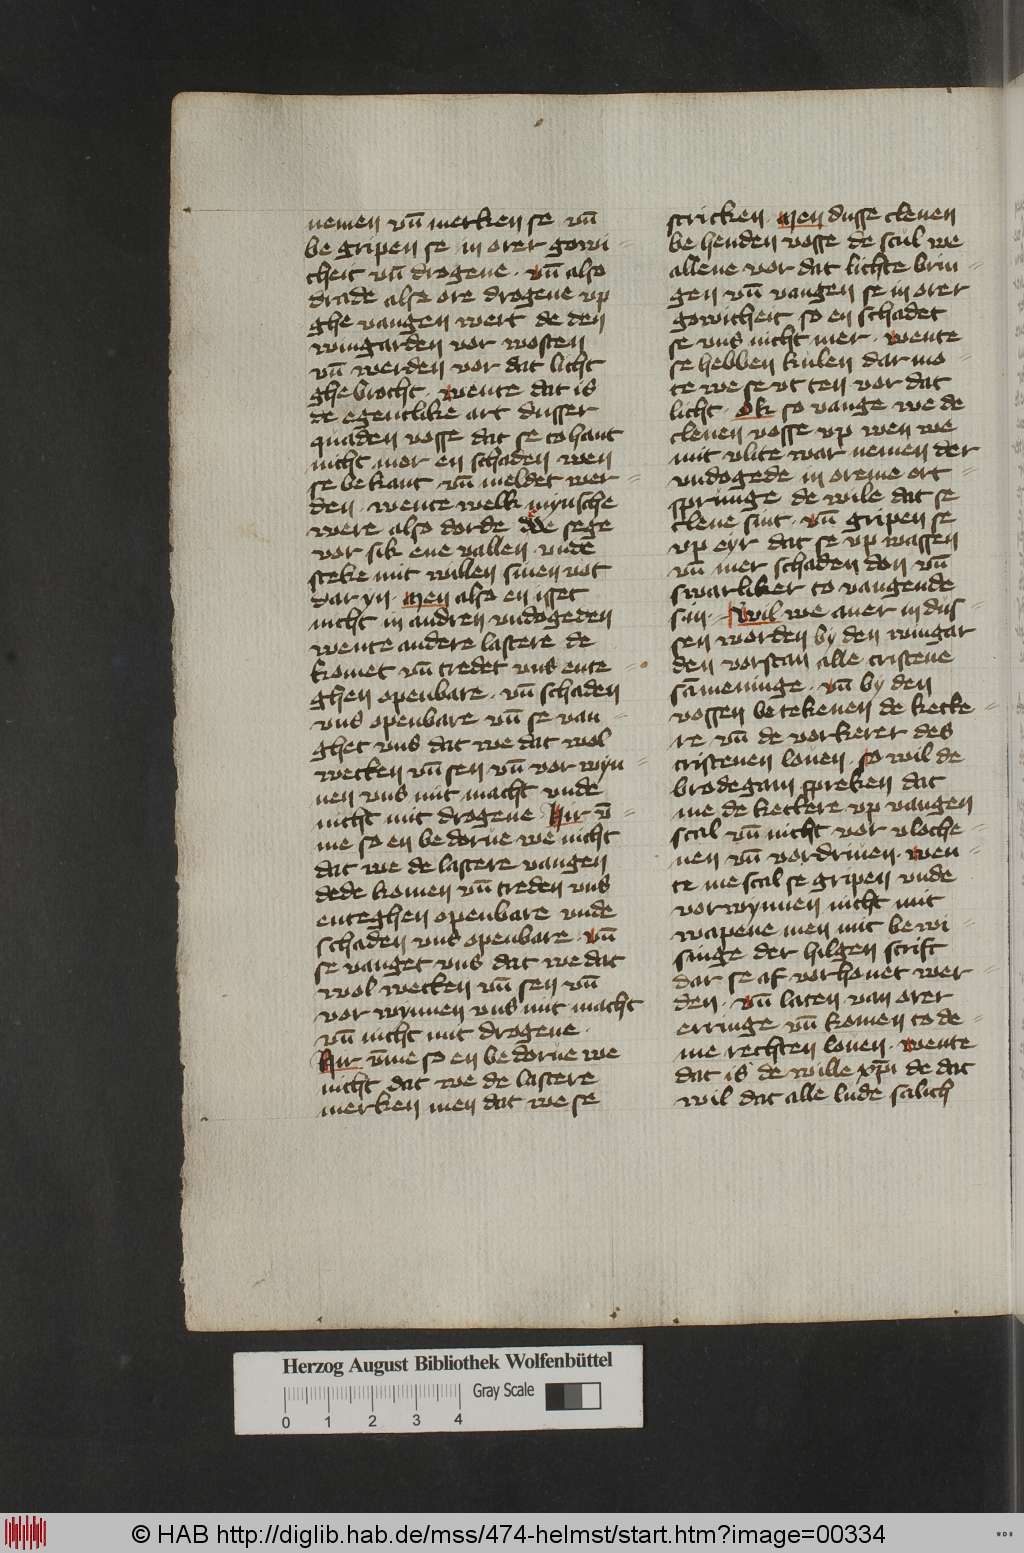 nemen vn̄ merken se vn̄
be gripen se in orer gowi
cheit vn̄ drogene · vn̄ also
drade also ore drogene vp
ghe vangen wert de den
wingarden vor wosten
vn̄ werden vor dat licht
ghebrocht · wente dat is
de egentlike art dusser
quaden vosse dat se to hant
nicht mer en schaden wen
se be kant vn̄ meldet wer
den · wente welk mynsche
were also dorde de sege
vor sik ene vallen vnde
steke mit willen sinen vot
dar yn · Men also en isset
nicht in andren vndogeden
wente andere lastere de
komet vn̄ tredet vns ente
ghen openbare · vn̄ schaden
vns openbare vn̄ se van
ghet vns dat we dat wol
wecken vn̄ sen vn̄ vor wyn
nen vns mit macht vnde
nicht mit drogene Hir v̄
me so en bedorue we nicht
dat we de lastere vangen
dede komen vn̄ treden vns
enteghen openbare vnde
schaden vns openbare · vn̄
se vanget vns dat we dat
wol wecken vn̄ sen vn̄
vor wynnen vns mit macht
vn̄ nicht mit drogene ·
Hir v̄me so en bedorue we
nicht dat we de lastere
merken men dat we se
stricken · Men dusse clenen
be henden vosse de scul we
allene vor dat lichte brin
gen vn̄ vangen se in orer
gowicheit so en schadet
se vns nicht mer · wente
se hebben kulen dar mo
te we se vt ten vor dat
licht · Ok so vange we de
clenen vosse vp wen we
mit vlite war nemen der
vndogede in oreme ort
springe de wile dat se
clene sint · vn̄ gripen se
vp eyr dat se vp wassen
vn̄ mer schaden don vn̄
swarliker to vangende
sin · Wil we auer in dus
sen worden by den wingar
den vorstan alle cristene
sāmeninge · vn̄ by den
vossen be tekenen de kecke
re vn̄ de vorkerer des
cristenen louen · so wil de
brodegam spreken dat
me de keckere vp vangen
scal vn̄ nicht vor vloche
nen vn̄ vordriuen · wen
te me scal se gripen vnde
vorwynnen nicht mit
wapene men mit be wi
singe der hilgen scrift
dar se af vorhouet wer
den · vn̄ laten van orer
erringe vn̄ komen to de
me rechten louen · wente
dat is de wille xp̄i de dat
wil dat alle lude salich
Herzog August Bibliothek Wolfenbüttel
Gray Scale
0 1 2 3 4
© HAB http://diglib.hab.de/mss/474-helmst/start.htm?image=00334
WDB